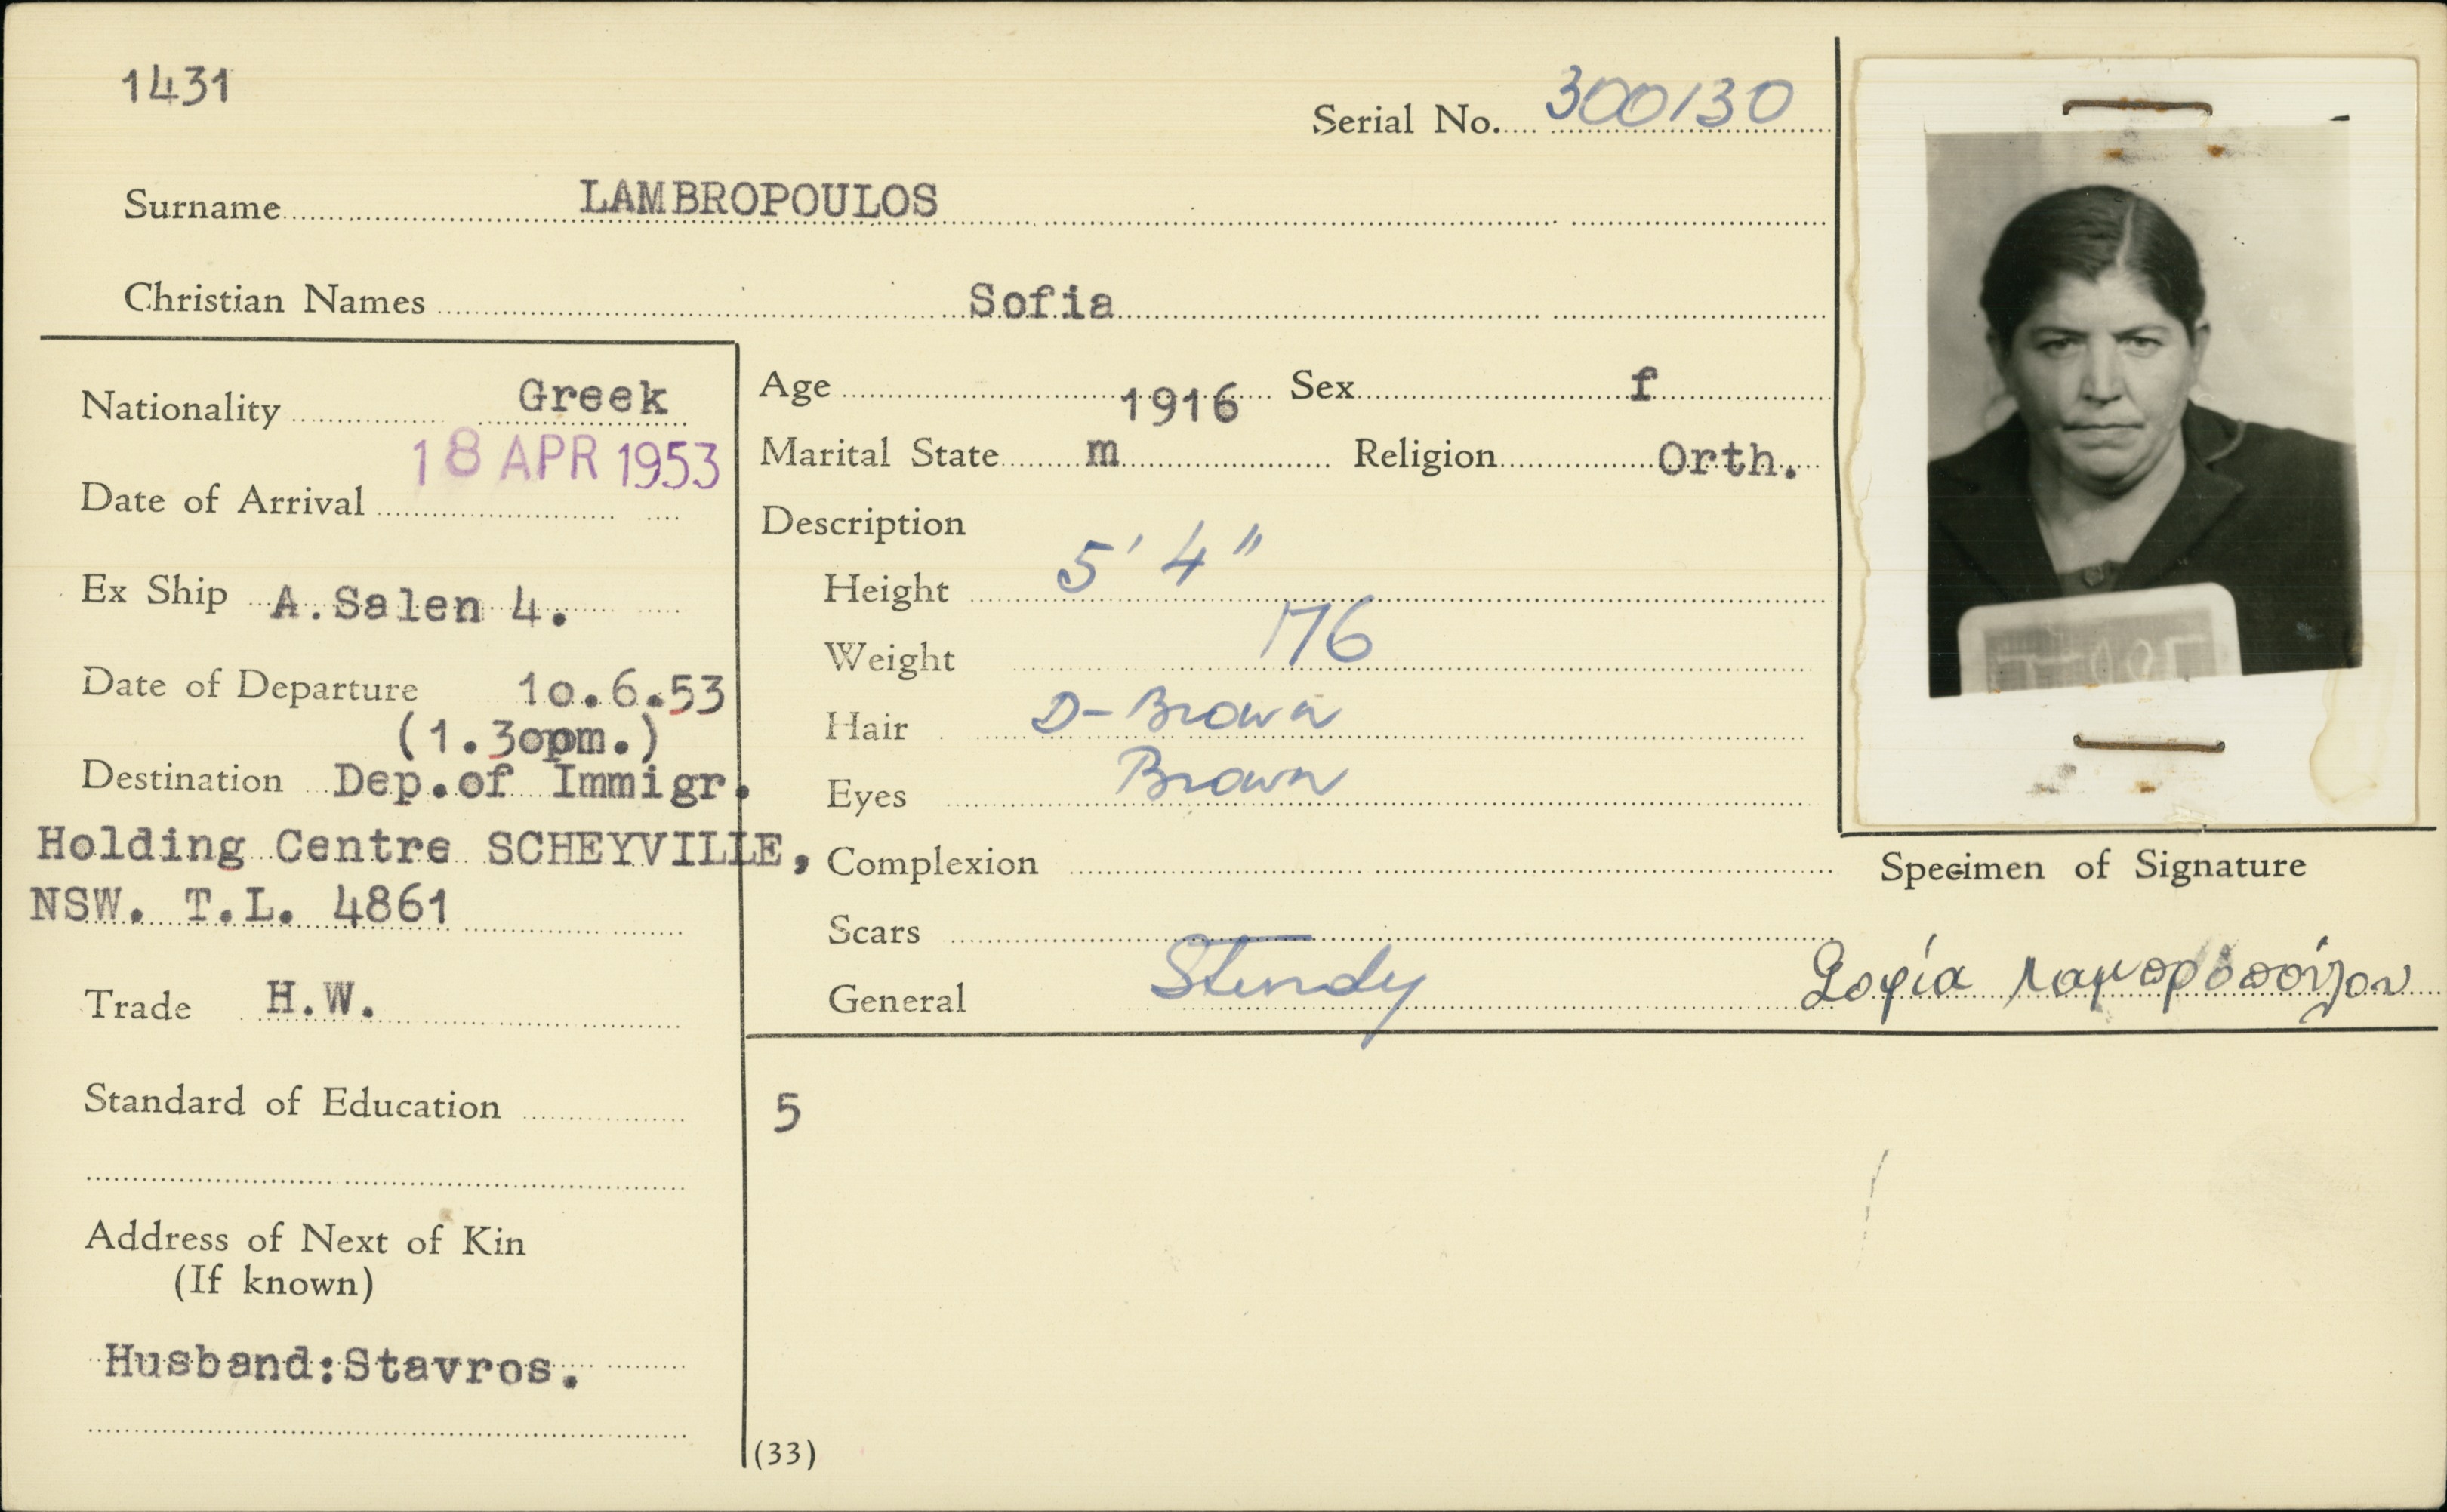 1431
Serial No. 300130
Surname LAMBROPOULOS
Christian Names Sofia
Nationality Greek
18 APR 1953
Date of Arrival
Ex Ship A.Salen 4.
Date of Departure 10.6.53
(1.30pm.)
Destination Dep.of Immigr.
Holding Centre SCHEYVILLE,
NSW. T.L. 4861
Trade H.W.
Standard of Education 5
Address of Next of Kin
(If known)
Husband:Stavros.
Age 1916 Sex f
Marital State m Religion Orth.
Description
Height 5' 4"
Weight 176
Hair D-Brown
Eyes Brown
Complexion
Scars
General Sturdy
(33)
Specimen of Signature
Σοφία Λαμπροπούλου